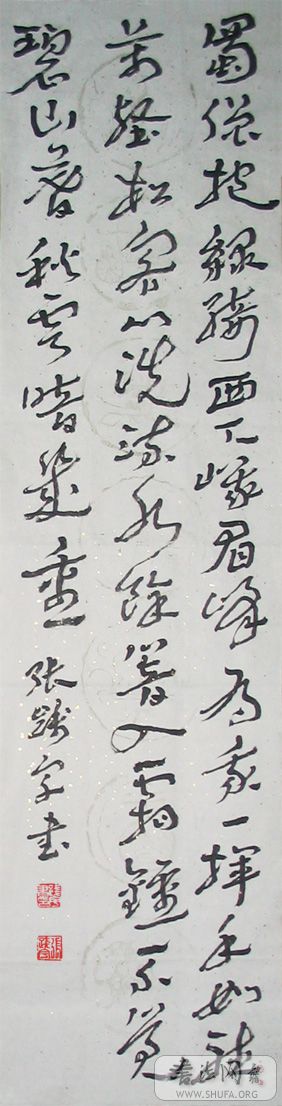 蜀僧抱綠綺西下峨眉峰為我一揮手如聽
萬壑松客心洗流水餘響入霜鐘不覺
碧山暮秋雲暗幾重
張書
WWW.SHUFA.ORG